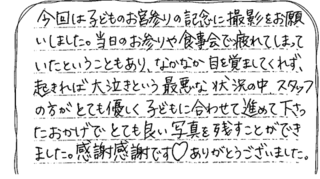 今回は子どものお宮参りの記念に撮影をお願
いしました。当日のお参りや食事会で疲れてしまって
いたということもあり、なかなか目を覚ましてくれず、
起きれば大泣きという最悪な状況の中、スタッフ
の方がとても優しく子どもに合わせて進めて下さっ
たおかげでとても良い写真を残すことができ
ました。感謝感謝です♡ありがとうございました。